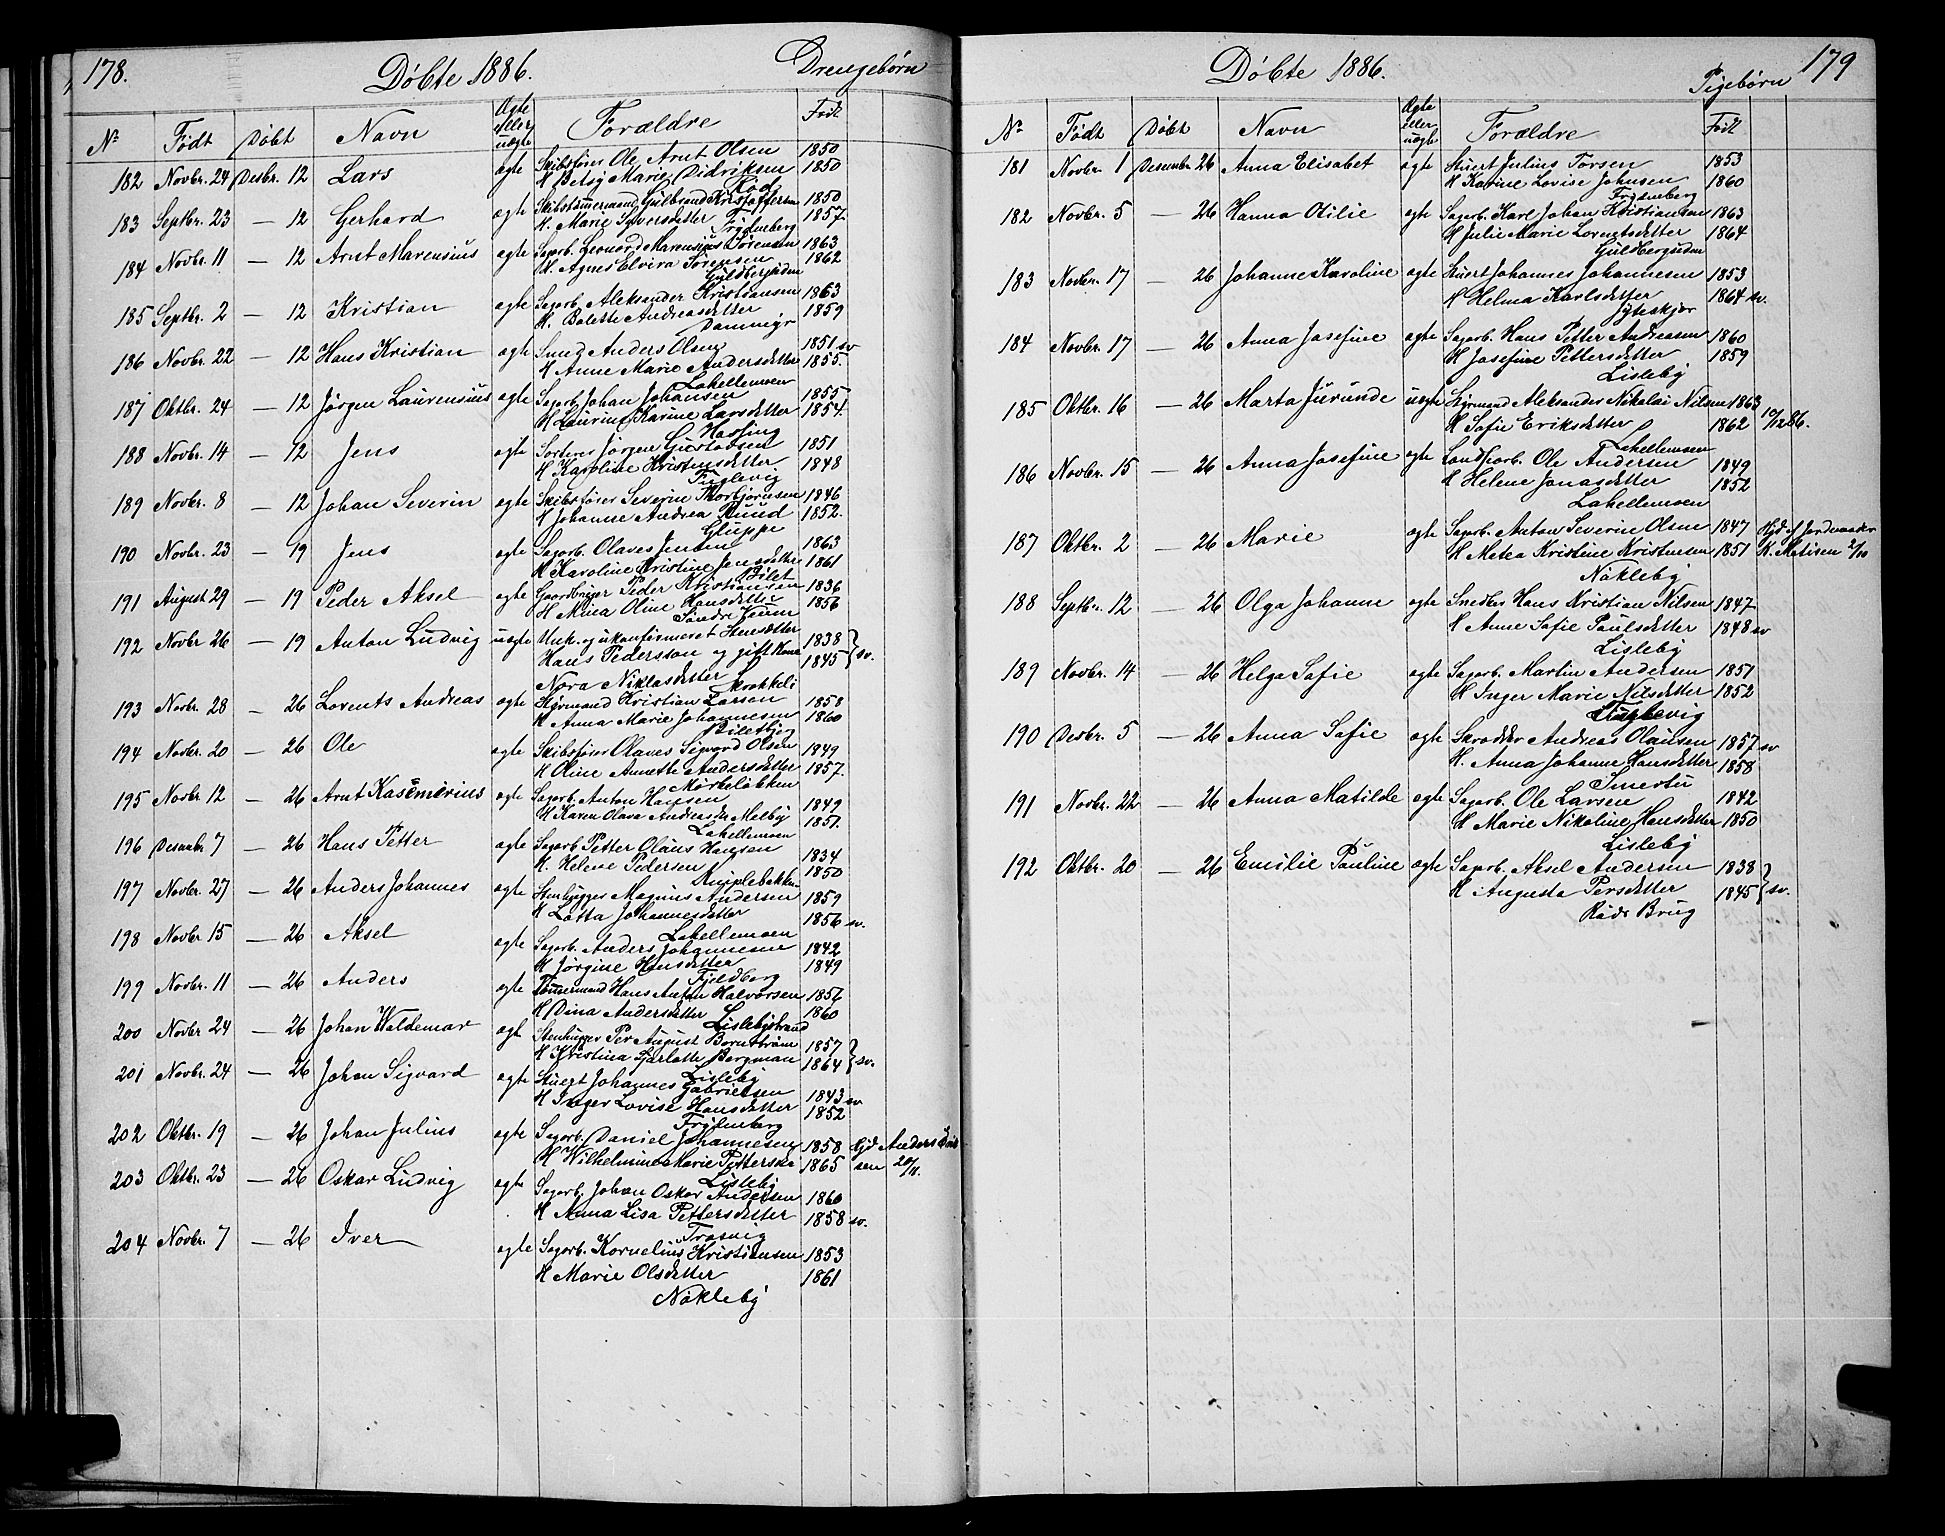 178. Døbte 1886. Drengebørn
No Født Døbt Navn Ægte eller uægte Forældre Født
182 Novbr. 24 Desbr. 12 Lars ægte Skibsfører Ole Arnt Olsen 1850
H Betsy Marie Didriksen 1850
Rød
183 Septbr. 23 — 12 Gerhard ægte Skibstømmermand Gulbrand Kristoffersen 1850
H. Marie Iversdatter 1857
Frydenberg
184 Novbr. 11 — 12 Arnt Marensius ægte Sagarb. Leonard Marensius Sørensen 1863
H. Agnes Elvira Sørensen 1862
Guldbergsiden
185 Septbr. 2 — 12 Kristian ægte Sagarb. Aleksander Kristiansen 1863
H. Bolette Andreasdatter 1859
Dammyr
186 Novbr. 22 — 12 Hans Kristian ægte Smed Anders Olsen 1851 sv
H Anne Marie Andersdatter 1855.
Lahellemoen
187 Oktbr. 24 — 12 Jørgen Laurensius ægte Sagarb. Johan Johansen 1855
H Laurine Karine Larsdatter 1854.
Hassing
188 Novbr. 14 — 12 Jens ægte Sorterer Jørgen Gustavsen 1851
H Karoline Kristensdatter 1848
Fuglevig
189 Novbr. 8 — 12 Johan Severin ægte Skibsfører Severin Thorbjørnsen 1846
H Johanne Andrea Ruud 1852.
Gluppe
190 Novbr. 23 — 19 Jens ægte Sagarb. Olaves Jensen 1863
H Karoline Kristine Jensdatter 1861
Bilet
191 August 29 — 19 Peder Aksel ægte Gaardbruger Peder Kristiansen 1836
H Mina Oline Hansdatter 1856
Søndre Kaurin
192 Novbr 26 — 19 Anton Ludvig uægte Unk. og ukonfirmeret Stensætter
Hans Pedersson og gift Kone 1838
Nora Niklasdatter 1845 } sv.
Skrokkeli
193 Novbr. 28 — 26 Lorents Andreas ægte Styrmand Kristian Larsen 1858
H Anna Marie Johannesen 1860
Biletbjerg
194 Novbr. 20 — 26 Ole ægte Skibsfører Olaves Sigvard Olsen 1849
H Oline Annette Andersdatter 1857.
Mørkeløkken
195 Novbr 12 — 26 Arnt Kasemerius ægte Sagarb. Anton Hansen 1849
H Karen Olava Andreasdr Melby 1851.
Lahellemoen
196 Desembr 7 — 26 Hans Petter ægte Sagarb Petter Olaus Hansen 1834
H. Helene Pedersen 1850
Kniplebakken
197 Novbr. 27 — 26 Anders Johannes ægte Stenhugger Magnus Andersen 1859
H Lotta Johannesdatter 1856 sv.
Lahellemoen
198 Novbr 15 — 26 Aksel ægte Sagarb. Anders Johannesen 1842
H Jørgine Hansdatter 1849
Fjeldberg
199 Novbr. 11 — 26 Anders ægte Tømmermand Hans Anton Halvorsen 1856
H Dina Andersdatter 1860
Lislebystrand
200 Novbr 24 — 26 Johan Waldemar ægte Stenhugger Per August Bernstrøm 1857
H Kristina Sjarlotte Bergman 1864 } sv.
Lisleby
201 Novbr. 24 — 26 Johan Sigvard ægte Stuert Johannes Gabrielsen 1843 sv
H Inger Lovise Hansdatter 1852
Frydenberg
202 Oktbr. 19 — 26 Johan Julius ægte Sagarb. Daniel Johannesen 1858 Hjd Anders
H Wilhelmine Marie Petterska 1865 sen 20/11.
Lisleby
203 Oktbr. 23 — 26 Oskar Ludvig ægte Sagarb. Johan Oskar Andersen 1860
H Anna Lisa Pettersdatter 1858 sv.
Trosvig
204 Novbr. 7 — 26 Iver ægte Sagarb. Kornelius Kristiansen 1853
H Marie Olsdatter 1861
Nøkleby
Døbte 1886. Pigebørn 179
No Født Døbt Navn Ægte eller uægte Forældre Født
181 Novbr. 1 Desember 26 Anna Elisabet ægte Stuert Julius Torsen 1853
H Karine Lovise Johnsen 1860
Frydenberg
182 Novbr. 5 — 26 Hanna Otilie ægte Sagarb. Karl Johan Kristiansen 1863
H Julie Marie Lorentsdatter 1864
Guldbergsiden
183 Novbr. 17 — 26 Johanne Karoline ægte Stuert Johannes Johannesen 1853
H Helma Karlsdatter 1864 sv.
Gyteskjær
184 Novbr. 17 — 26 Anna Josefine ægte Sagarb. Hans Petter Andreasen 1860
H Josefine Pettersdatter 1859
Lisleby
185 Oktbr. 16 — 26 Marta Jurunde uægte Styrmand Aleksander Nikolai Nilsen 1863 10/1286.
H Sofie Eriksdatter 1862
Lahellemoen
186 Novbr. 15 — 26 Anna Josefine ægte Landharb. Ole Andersen 1849
H Helene Jonasdatter 1852
Lahellemoen
187 Oktbr. 2 — 26 Marie ægte Sagarb. Anton Severin Olsen 1847 Hjd af Jordemoder
H Metea Kristine Kristensen 1851 K. Matisen 2/10
Nøkleby
188 Septbr. 12 — 26 Olga Johanne ægte Snedker Hans Kristian Nilsen 1847
H Anne Sofie Paulsdatter 1848 sv
Lisleby
189 Novbr. 14 — 26 Helga Sofie ægte Sagarb. Martin Andersen 1851
H Inger Marie Nilsdatter 1852
Fuglevig
190 Desbr. 5 — 26 Anna Sofie ægte Skrædder Andreas Olausen 1857 sv
H. Anna Johanne Hansdatter 1858
Smertu
191 Novbr. 22 — 26 Anna Matilde ægte Sagarb. Ole Larsen 1842
H Marie Nikoline Hansdatter 1850
Lisleby
192 Oktbr. 20 — 26 Emilie Pauline ægte Sagarb. Aksel Andersen 1838
H Augusta Persdatter 1845 } sv.
Røds Brug